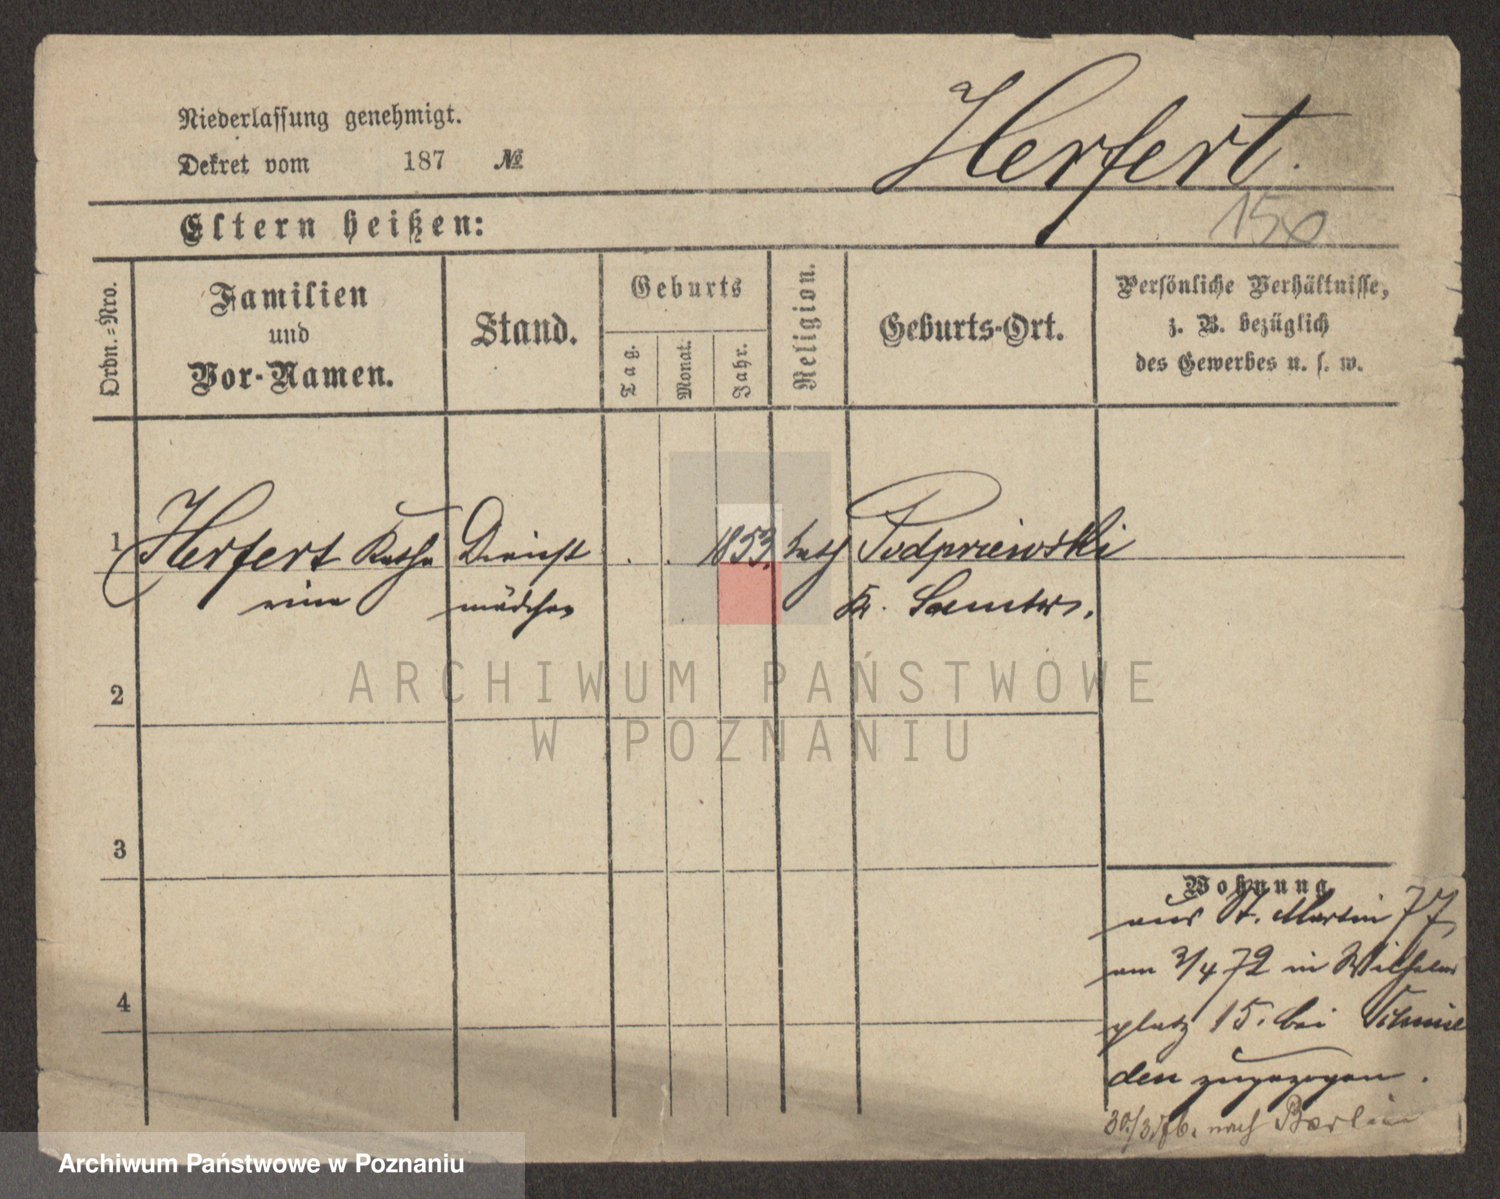 Niederlassung genehmigt.
Dekret vom 187 №
Herfert.
150
Eltern heißen:
Ordn.-Nro.
Familien
und
Vor-Namen.
Stand.
Geburts
Tag.
Monat.
Jahr.
Religion.
Geburts-Ort.
Persönliche Verhältnisse,
z. B. bezüglich
des Gewerbes u. s. w.
1 Herfert Katha Dienst . . 1853. kath
rine mädchen Kr. Samter.
2
3
4
Wohnung
aus St. Martin 77
am 3/4 72 in Wilhelms
platz 15. bei
den zugezogen.
30/3.76. nach Berlin
ARCHIWUM PAŃSTWOWE
W POZNANIU
Archiwum Państwowe w Poznaniu